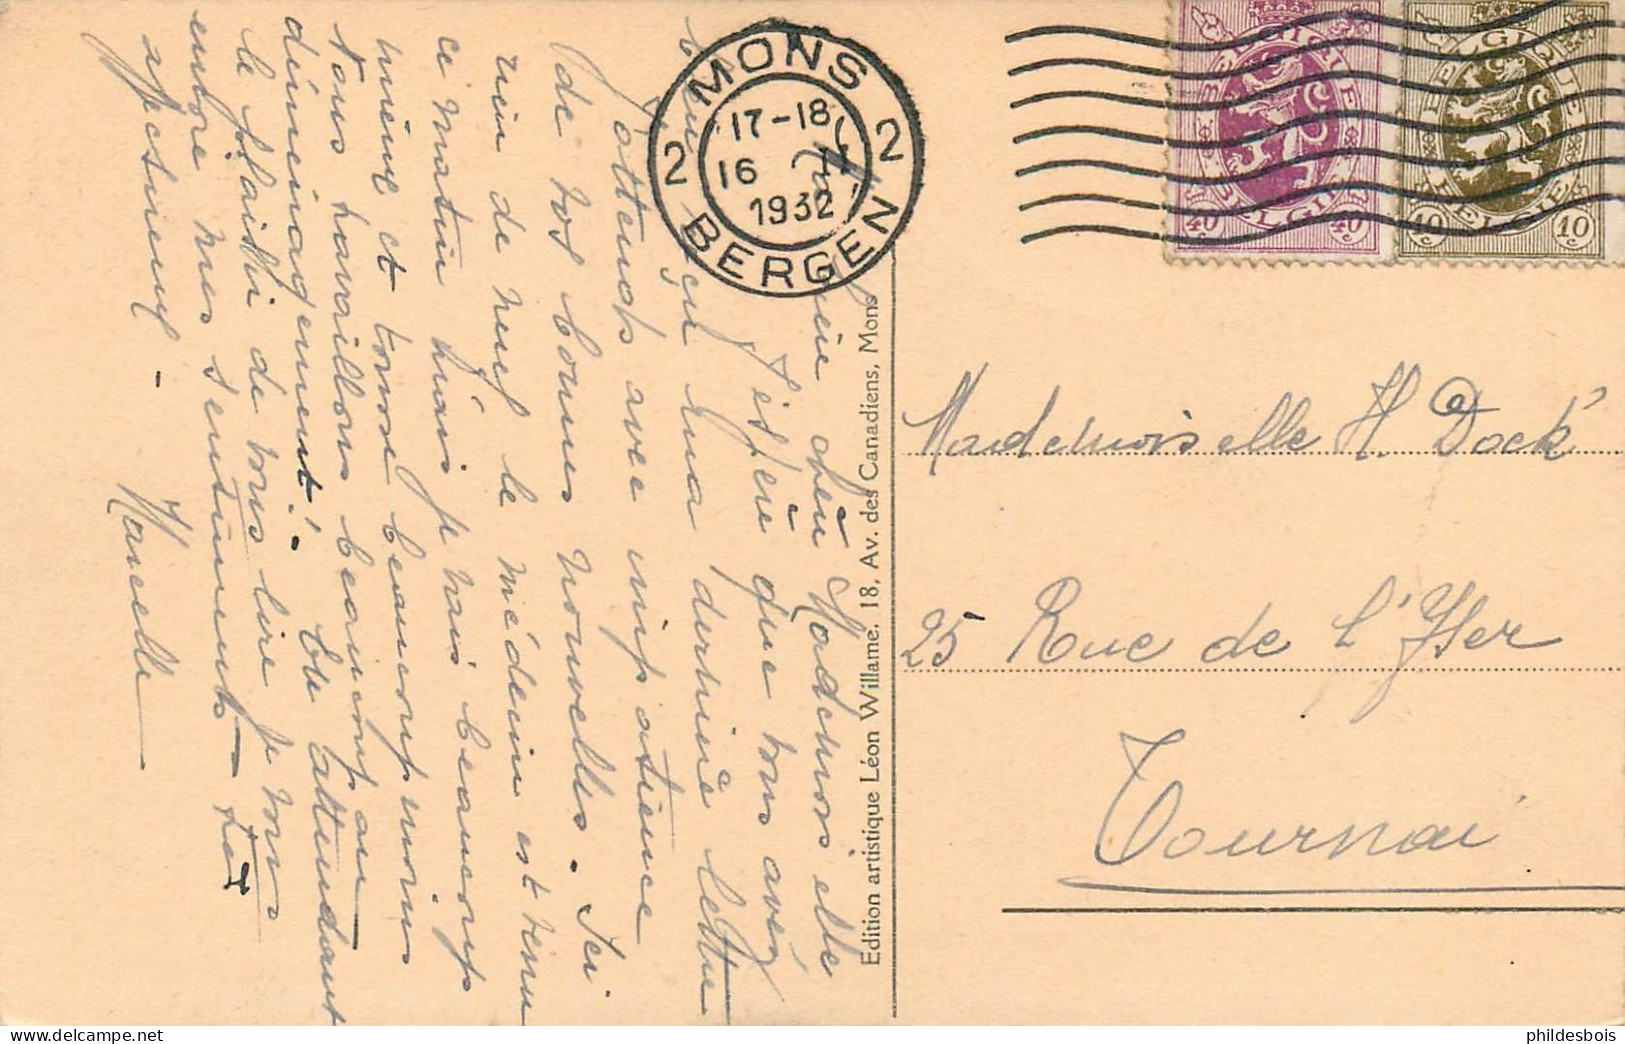 MONS
17-18
16
1932
2 2
BERGEN
BELGIQUE
BELGIE
40 c 40 c
BELGIQUE
BELGIE
10 c 10 c
chère Mademoiselle
J'espère que vous avez
bien reçu ma dernière lettre
J'attends avec impatience
de vos bonnes nouvelles. Ici
rien de neuf le médecin est venu
ce matin mais je vais beaucoup
mieux et tousse beaucoup moins
Nous travaillons beaucoup au
déménagement! En attendant
le plaisir de vous lire je vous
envoie mes sentiments
affectueux -
Marcelle
Edition artistique Léon Willame, 18, Av. des Canadiens, Mons
Mademoiselle H. Dock
25 Rue de l'Yser
Tournai
phildesbois